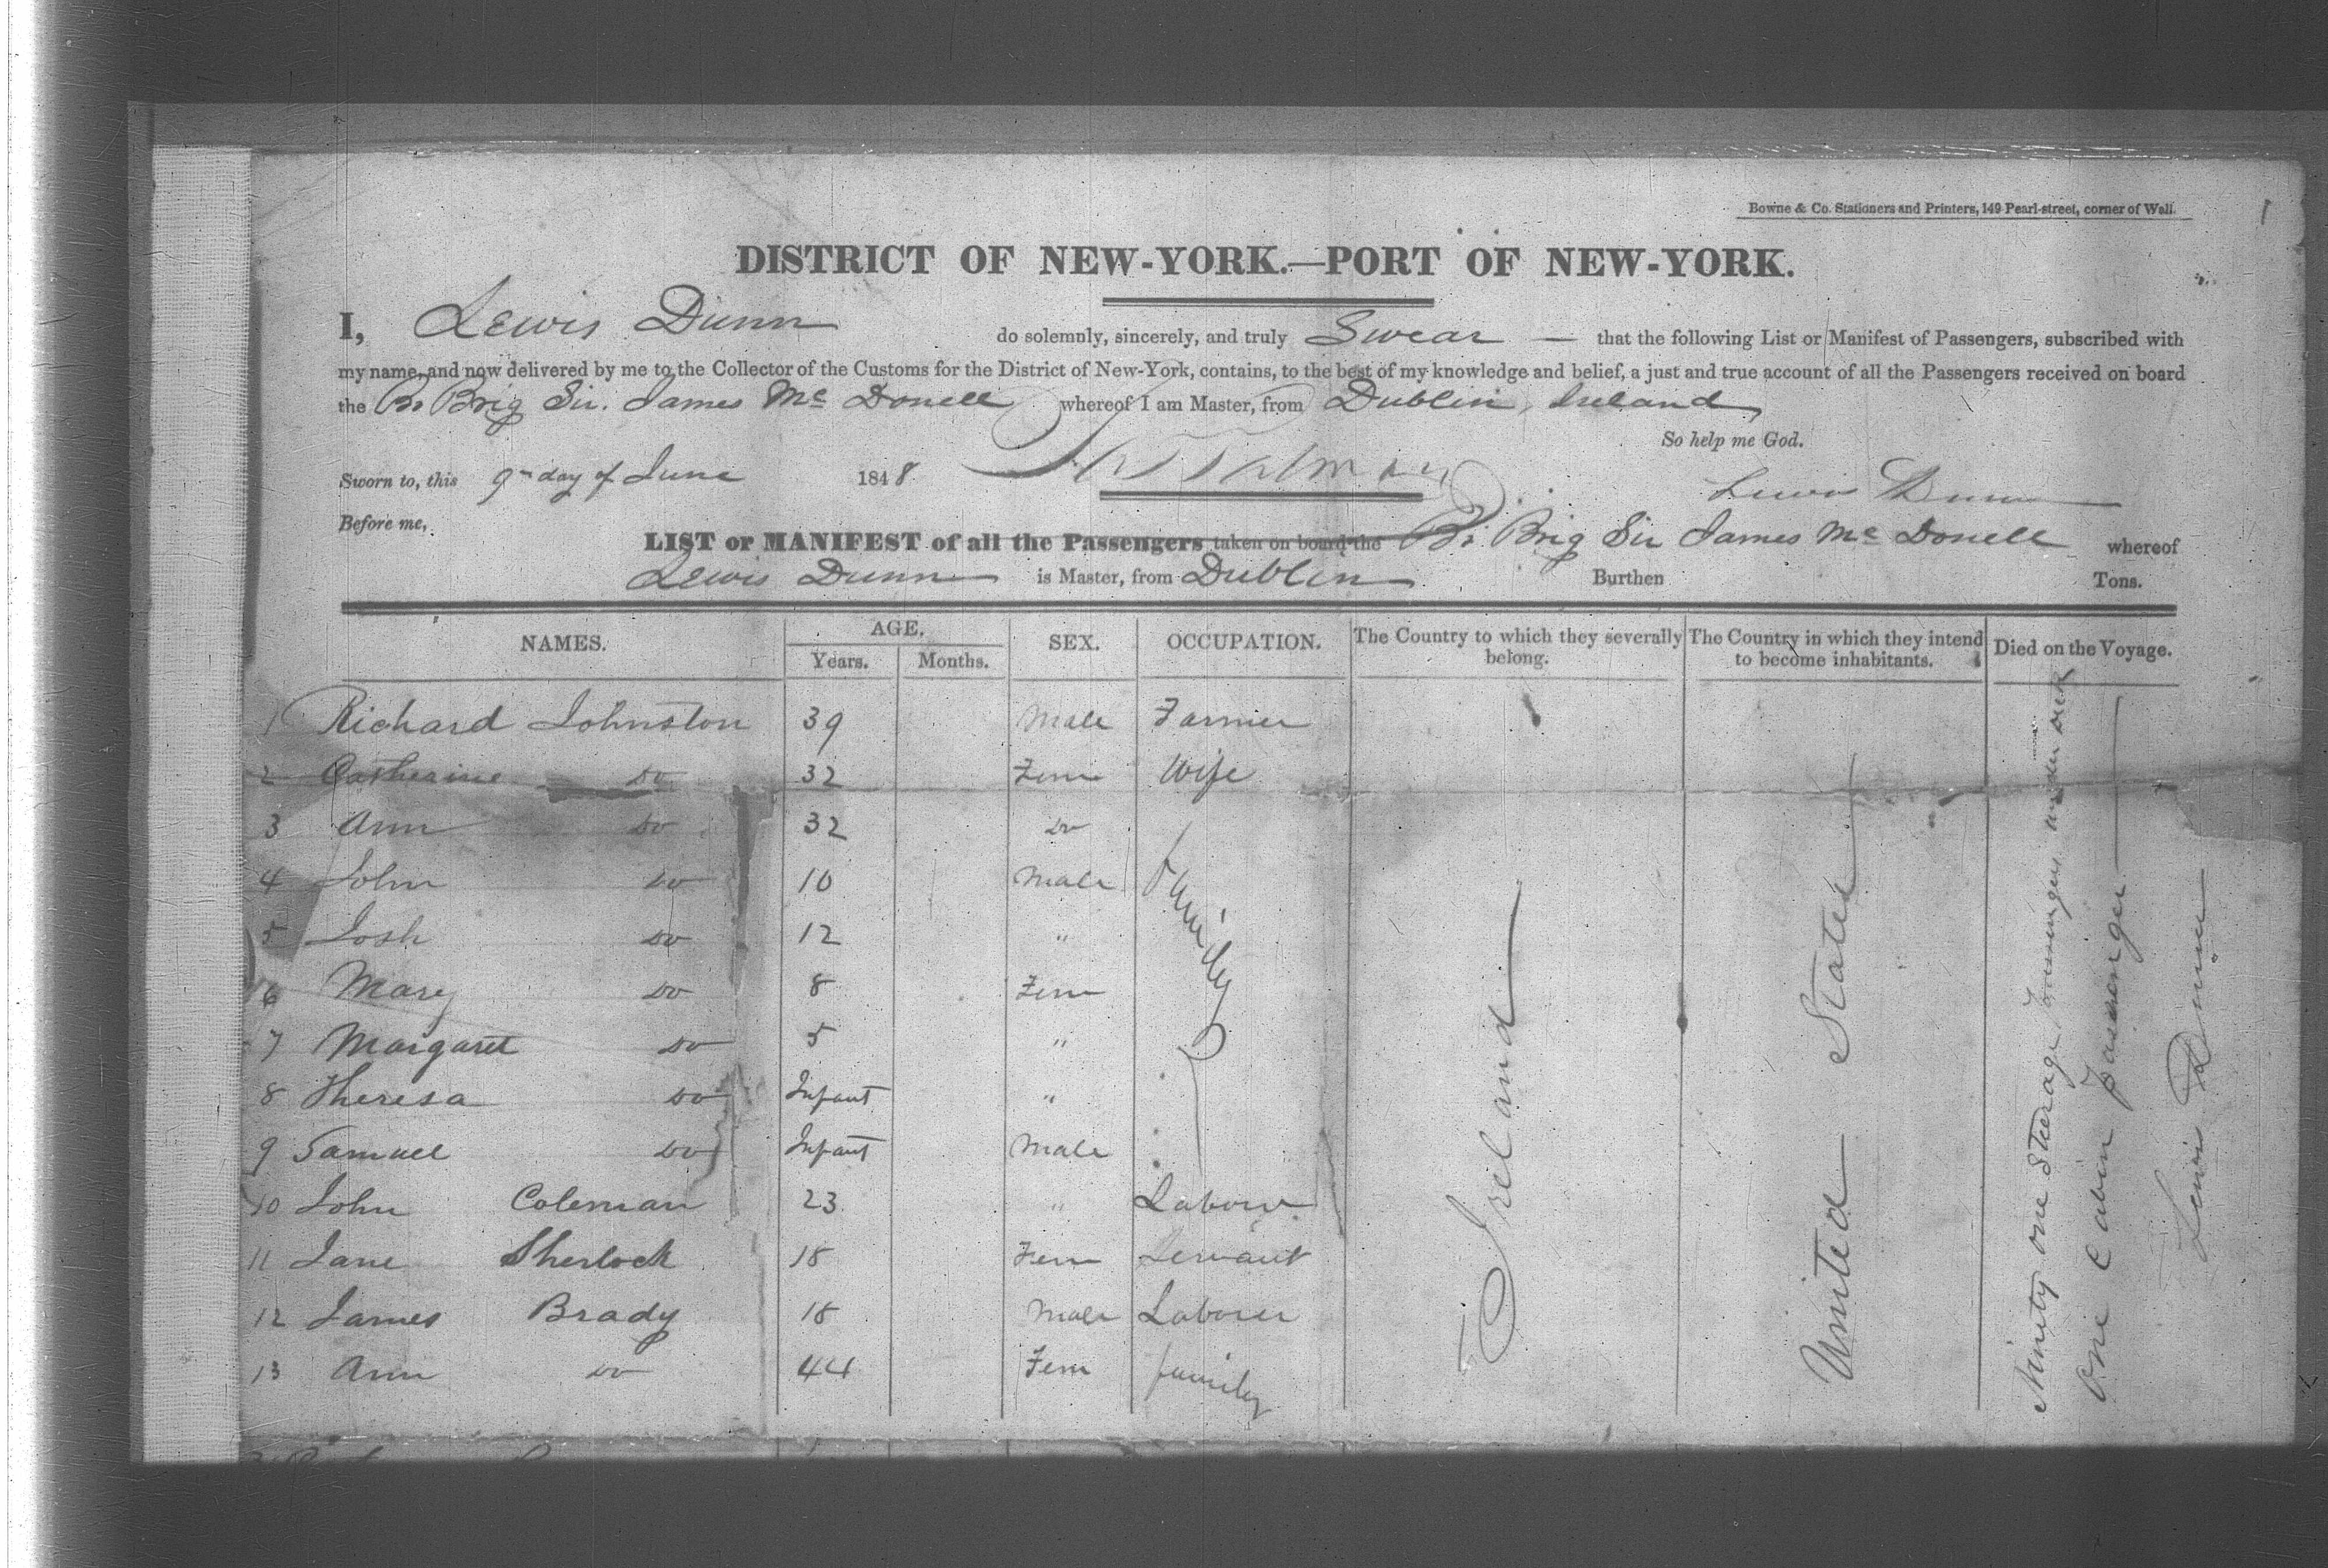 Bowne & Co. Stationers and Printers, 149 Pearl-street, corner of Wall.
DISTRICT OF NEW-YORK.—PORT OF NEW-YORK.
I, Lewis Dunn do solemnly, sincerely, and truly Swear — that the following List or Manifest of Passengers, subscribed with
my name, and now delivered by me to the Collector of the Customs for the District of New-York, contains, to the best of my knowledge and belief, a just and true account of all the Passengers received on board
the Br. Brig Sir. James Mc Donell whereof I am Master, from Dublin, Ireland
So help me God.
Sworn to, this 9th day of June 1848 Lewis Dunn
Before me,
LIST or MANIFEST of all the Passengers taken on board the Br. Brig Sir James Mc Donell whereof
Lewis Dunn is Master, from Dublin Burthen Tons.
NAMES. AGE. Years. Months. SEX. OCCUPATION. The Country to which they severally belong. The Country in which they intend to become inhabitants. Died on the Voyage.
1 Richard Johnston 39 Male Farmer
2 Catherine Do 32 Fem Wife
3 Ann Do 32 Do
4 John Do 10 Male
5 Josh Do 12 "
6 Mary Do 8 Fem
7 Margaret Do 5 "
8 Theresa Do Infant "
9 Samuel Do Infant Male
family
10 John Coleman 23 " Labour
11 Jane Sherlock 18 Fem Servant
12 James Brady 18 Male Laborer
13 Ann Do 44 Fem family
Ireland
United States
Ninety one Steerage Passengers under deck
One Cabin passenger
Lewis Dunn